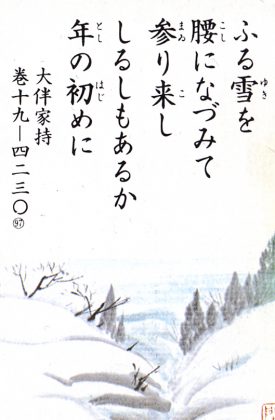 ふる雪を
腰になづみて
参り来し
しるしもあるか
年の初めに
大伴家持
巻十九―四二三〇㊗